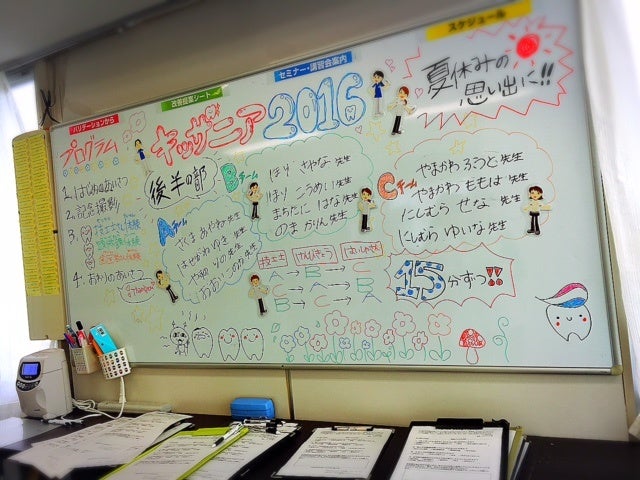 スケジュール
セミナー・講習会案内
改善提案シート
バリデーションから
キッザニア2016
夏休みの
思い出に!!
プログラム
1. はじめのあいさつ
2. 記念撮影
3.
4. おわりのあいさつ
後半の部
Aチーム
さくま あやね 先生
はせがわ ゆき 先生
やの りの 先生
Bチーム
ほり さやな 先生
ほり こうめい 先生
まちだに はな 先生
のま かりん 先生
Cチーム
やまかわ ろうと 先生
やまかわ ももは 先生
にしむら せな 先生
にしむら ゆいな 先生
技工士 けんびきょう はいしゃさん
A → B → C
B → C → A
C → A → B
15分ずつ!!